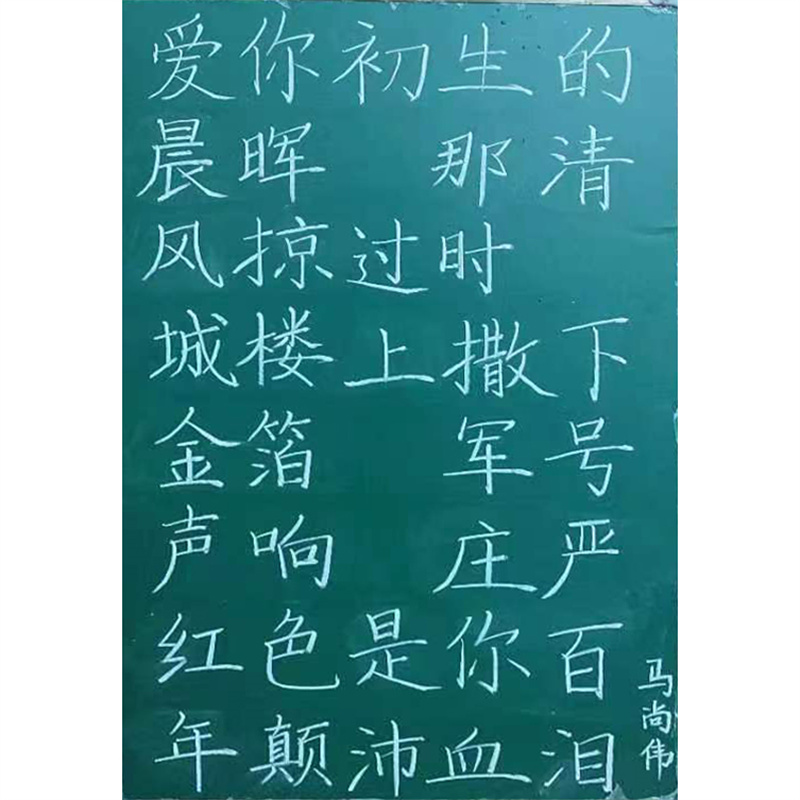 爱你初生的
晨晖 那清
风掠过时
城楼上撒下
金箔 军号
声响 庄严
红色是你百
年颠沛血泪
马尚伟